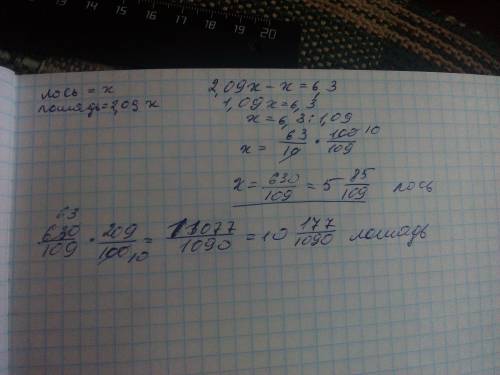 15 16 17 18 19 20
лось = x
лошадь = 2,09 x
2,09x - x = 6,3
1,09x = 6,3
x = 6,3 : 1,09
x = 63/10 · 100/109 10
x = 630/109 = 5 85/109 лось
63
630/109 · 209/100 10 = 11077/1090 = 10 177/1090 лошадь